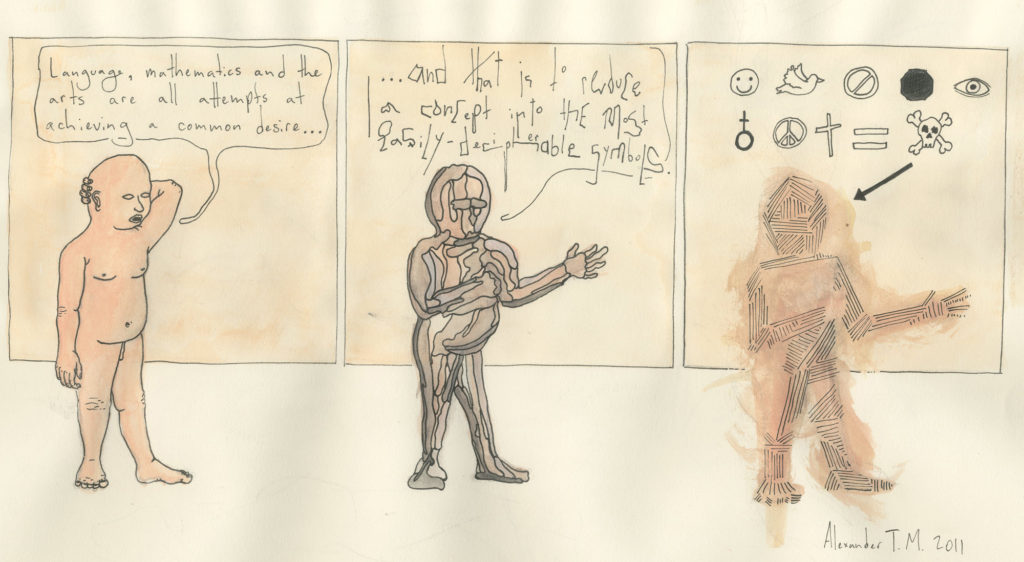 Language, mathematics and the
arts are all attempts at
achieving a common desire...
...and that is to reduce
a concept into the most
easily-decipherable symbols.
Alexander T.M. 2011